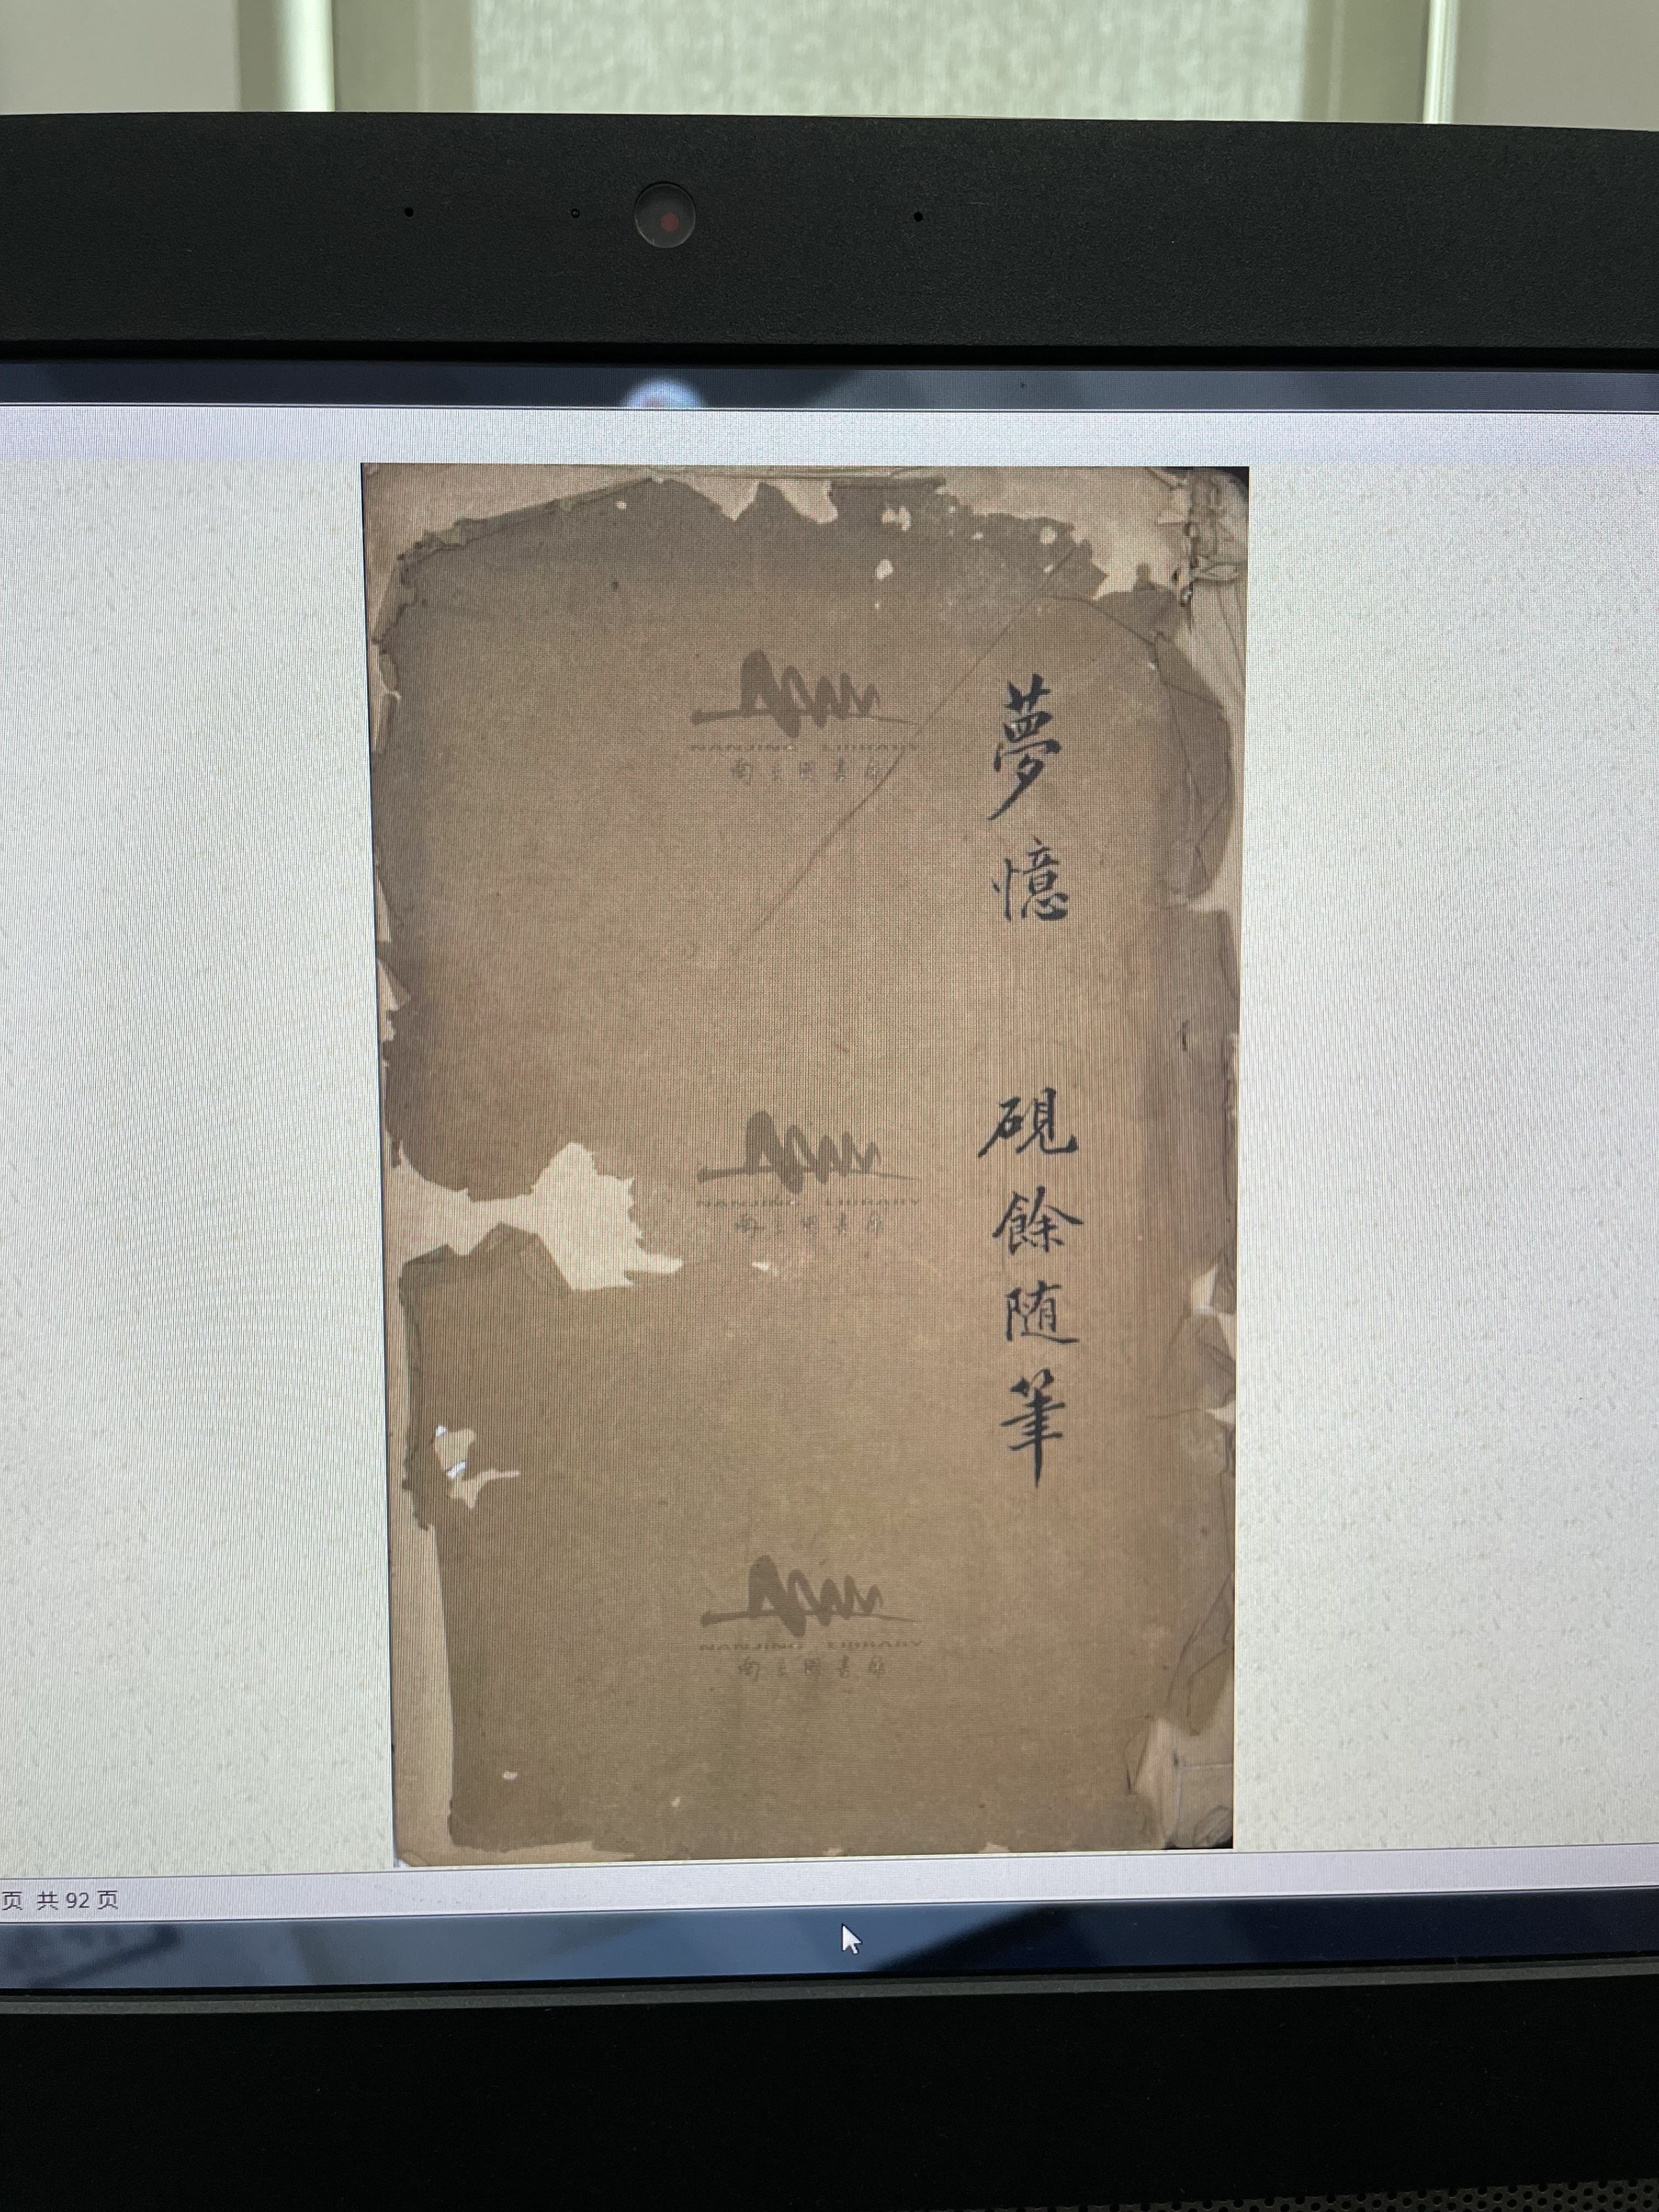 夢憶 硯餘随筆
NANJING LIBRARY
南京圖書館
NANJING LIBRARY
南京圖書館
NANJING LIBRARY
南京圖書館
页 共 92 页